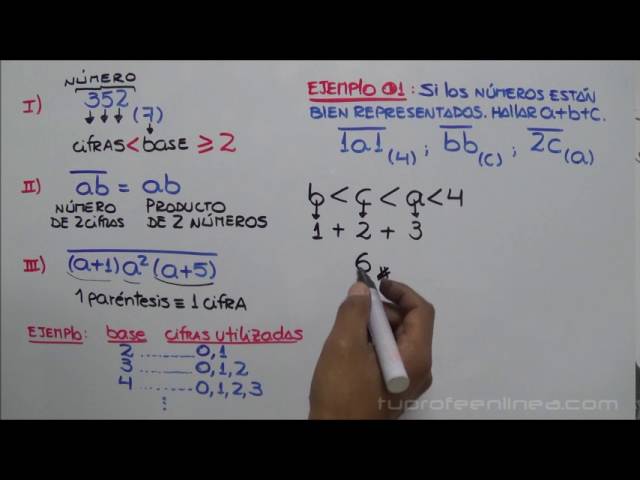 NÚMERO
I) 352(7)
cifras < base ≥ 2
II) ab = ab
NÚMERO DE 2 cifras
PRODUCTO DE 2 NÚMEROS
III) (a+1)a²(a+5)
1 paréntesis ≡ 1 cifra
EJEMPlo: base cifras utilizadas
2 ........ 0,1
3 ........ 0,1,2
4 ........ 0,1,2,3
⋮
EJEMPLO 01: Si los NÚMEROS ESTÁN
BIEN REPRESENTADOS. Hallar a+b+c.
1a1(4) ; bb(c) ; 2c(a)
b < c < a < 4
1 + 2 + 3
6
tuprofeenlinea.com